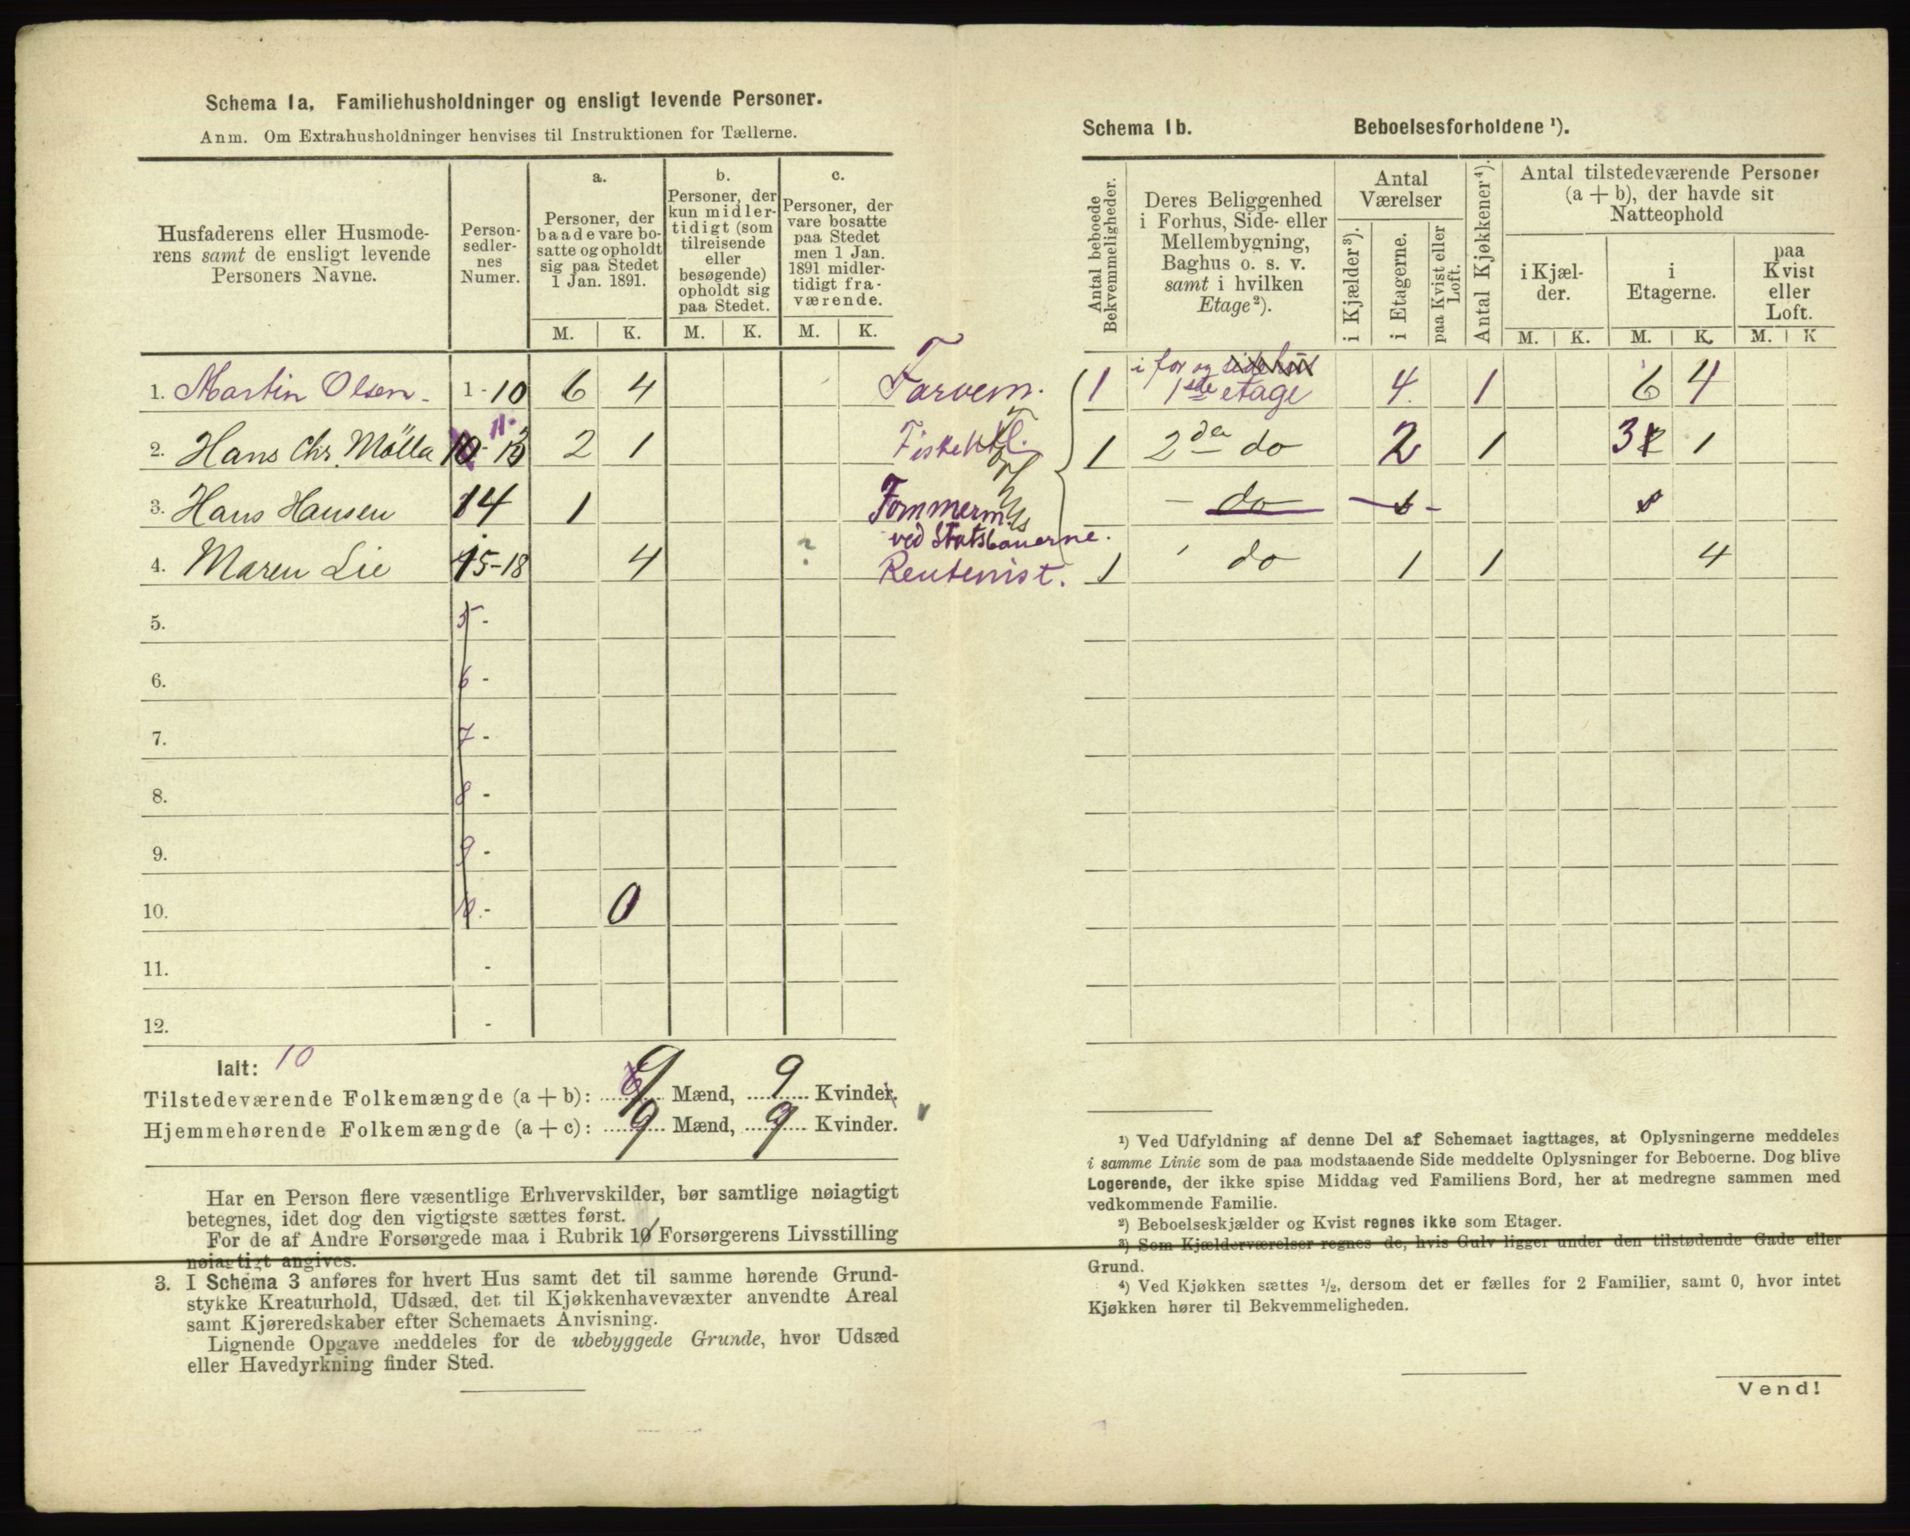 Schema 1a. Familiehusholdninger og ensligt levende Personer.
Anm. Om Extrahusholdninger henvises til Instruktionen for Tællerne.
Husfaderens eller Husmode-
rens samt de ensligt levende
Personers Navne.
Person-
sedler-
nes
Numer.
a.
Personer, der
baade vare bo-
satte og opholdt
sig paa Stedet
1 Jan. 1891.
b.
Personer, der
kun midler-
tidigt (som
tilreisende
eller
besøgende)
opholdt sig
paa Stedet.
c.
Personer, der
vare bosatte
paa Stedet
men 1 Jan.
1891 midler-
tidigt fra-
værende.
M. K. M. K. M. K.
1. Martin Olsen 1-10 6 4 Farvem.
2. Hans Chr. Mölla 11- 2 1
3. Hans Hansen 14 1 Tømmerm.
ved Statsbanerne.
4. Maren Lie 15-18 4 ? Rentenist.
5. 5-
6. 6-
7. 7-
8. 8-
9. 9-
10. 10.- 0
11. -
12. -
Ialt: 10
Tilstedeværende Folkemængde (a + b): 9 Mænd, 9 Kvinder.
Hjemmehørende Folkemængde (a + c): 9 Mænd, 9 Kvinder.
Har en Person flere væsentlige Erhvervskilder, bør samtlige nøiagtigt
betegnes, idet dog den vigtigste sættes først.
For de af Andre Forsørgede maa i Rubrik 10 Forsørgerens Livsstilling
nøiagtigt angives.
3. I Schema 3 anføres for hvert Hus samt det til samme hørende Grund-
stykke Kreaturhold, Udsæd, det til Kjøkkenhavevæxter anvendte Areal
samt Kjøreredskaber efter Schemaets Anvisning.
Lignende Opgave meddeles for de ubebyggede Grunde, hvor Udsæd
eller Havedyrkning finder Sted.
Schema 1b. Beboelsesforholdene ¹).
Antal beboede
Bekvemmeligheder.
Deres Beliggenhed
i Forhus, Side- eller
Mellembygning,
Baghus o. s. v.
samt i hvilken
Etage²).
Antal
Værelser
i Kjælder³).
i Etagerne.
paa Kvist eller
Loft.
Antal Kjøkkener⁴).
Antal tilstedeværende Personer
(a + b), der havde sit
Natteophold
i Kjæl-
der.
i
Etagerne.
paa
Kvist
eller
Loft.
M. K. M. K. M. K
1 i for og sidehus
1ste etage 4 1 6 4
1 2den do 2 1 3 1
- do -
1 do 1 1 4
¹) Ved Udfyldning af denne Del af Schemaet iagttages, at Oplysningerne meddeles
i samme Linie som de paa modstaaende Side meddelte Oplysninger for Beboerne. Dog blive
Logerende, der ikke spise Middag ved Familiens Bord, her at medregne sammen med
vedkommende Familie.
²) Beboelseskjælder og Kvist regnes ikke som Etager.
³) Som Kjælderværelser regnes de, hvis Gulv ligger under den tilstødende Gade eller
Grund.
⁴) Ved Kjøkken sættes ½, dersom det er fælles for 2 Familier, samt 0, hvor intet
Kjøkken hører til Bekvemmeligheden.
Vend!